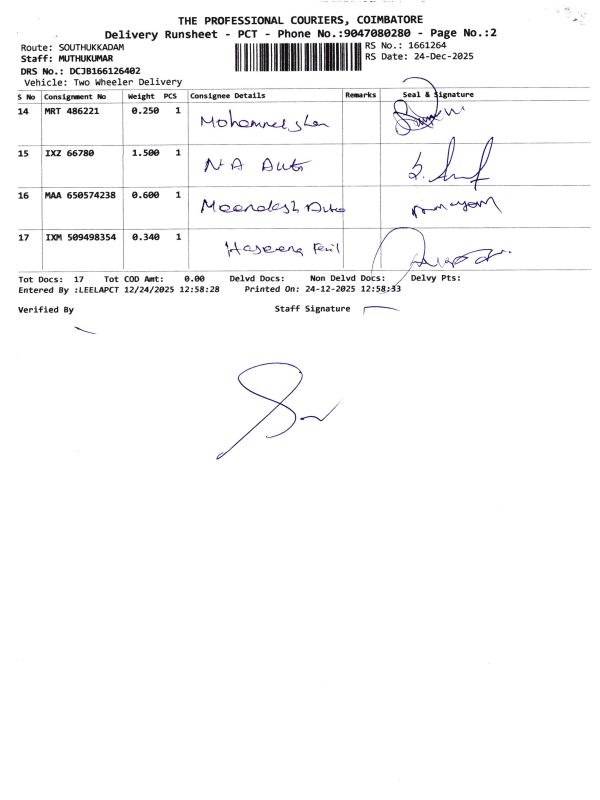 THE PROFESSIONAL COURIERS, COIMBATORE
Delivery Runsheet - PCT - Phone No.:9047080280 - Page No.:2
Route: SOUTHUKKADAM
RS No.: 1661264
Staff: MUTHUKUMAR
RS Date: 24-Dec-2025
DRS No.: DCJB166126402
Vehicle: Two Wheeler Delivery
S No Consignment No Weight PCS Consignee Details Remarks Seal & Signature
14 MRT 486221 0.250 1
15 IXZ 66780 1.500 1 NA Auto
16 MAA 650574238 0.600 1 Auto
17 IXM 509498354 0.340 1 Haseena
Tot Docs: 17 Tot COD Amt: 0.00 Delvd Docs: Non Delvd Docs: Delvy Pts:
Entered By :LEELAPCT 12/24/2025 12:58:28 Printed On: 24-12-2025 12:58:33
Verified By Staff Signature